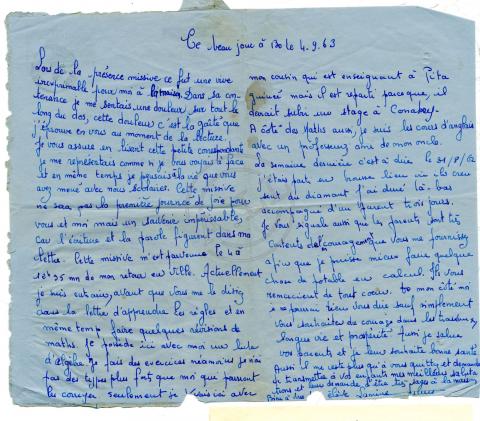 Ce beau jour à Bo le 4.9.63
Lors de la présence missive ce fut une vive
inexprimable pour moi à la maison. Dans sa con
tenance je me sentais une douleur sur tout le
long du dos, cette douleur c'est la gaîté que
j'éprouve en vous au moment de la lecture.
Je vous assure en lisant cette petite correspondance
je me représentais comme si je vous voyais à face
Et en même temps je pensais à la vie que vous
avez mené avec nous scolaires. Cette missive
ne sera pas la première journée de joie pour
vous et moi mais un sauveur impérissable,
car l'écriture et la parole figurent dans ma
lettre. Cette missive m'est parvenue le 4 à
18h 35 mn de mon retour en ville. Actuellement
je suis entrain, avant que vous me le disiez
dans la lettre d'apprendre les règles et en
même temps faire quelques révisions de
maths. Je possède ici avec moi un livre
d'algèbre. Je fais des exercices néanmoins je n'ai
pas des types plus forts que moi qui pourront
les corriger seulement je avec
mon cousin qui est enseignant à Pita
Guinée mais il est reparti parce que, il
devait subir un stage à Conakry.
A côté des Maths aussi, je suis les cours d'anglais
avec un professeur ami de mon oncle.
La semaine dernière c'est à dire le 31/8/62
j'étais parti en lieu où creu
sent du diamant j'ai duré là-bas
accompagné d'un parent trois jours.
Je vous signale aussi que les parents sont très
contents des courages que vous me fournissez
afin que je puisse mieux faire quelque
chose de potable en calcul. Ils vous
remercient de tout coeur. De mon côté moi
je ne pourrai rien vous dire sauf simplement
vous souhaiter du courage dans les travaux,
longue vie et prospérité. Aussi je salue
vos parents et je leur souhaite bonne santé
Aussi il ne reste plus qu'à vous quitter et demander
de transmettre à vos enfants mes meilleures saluta
tions et leur demander d'être très sages à la maison
élève Lamine